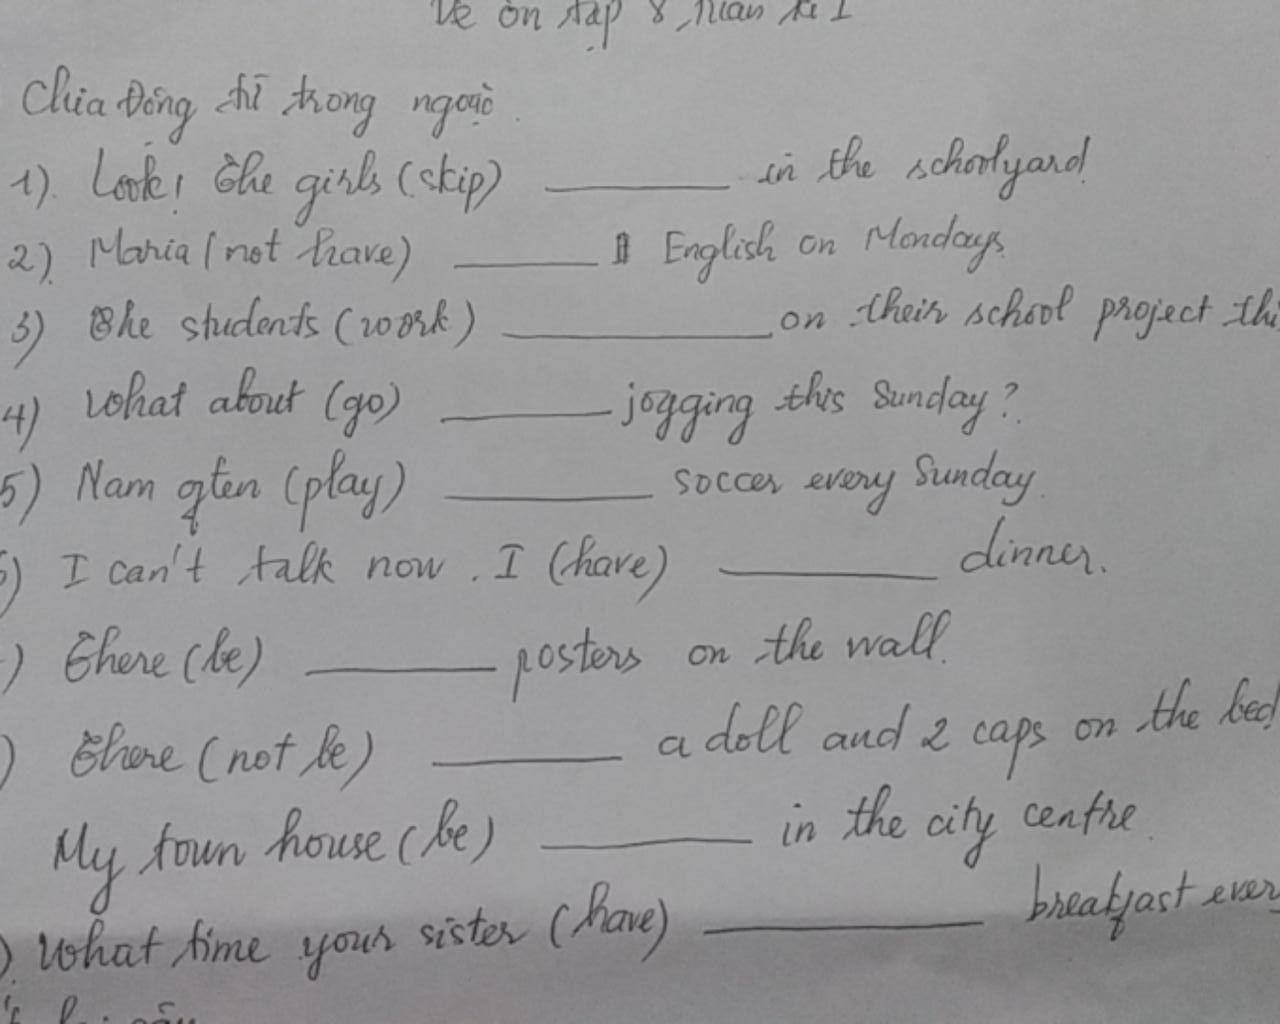 Về ôn tập 8 tuần kì I
Chia động từ trong ngoặc.
1). Look! The girls (skip) ________ in the schoolyard.
2). Maria (not have) ________ English on Mondays.
3) The students (work) ________ on their school project thi
4) What about (go) ________ jogging this Sunday?
5) Nam often (play) ________ soccer every Sunday.
) I can't talk now. I (have) ________ dinner.
) There (be) ________ posters on the wall.
) There (not be) ________ a doll and 2 caps on the bed
My town house (be) ________ in the city centre.
). What time your sister (have) ________ breakfast ever